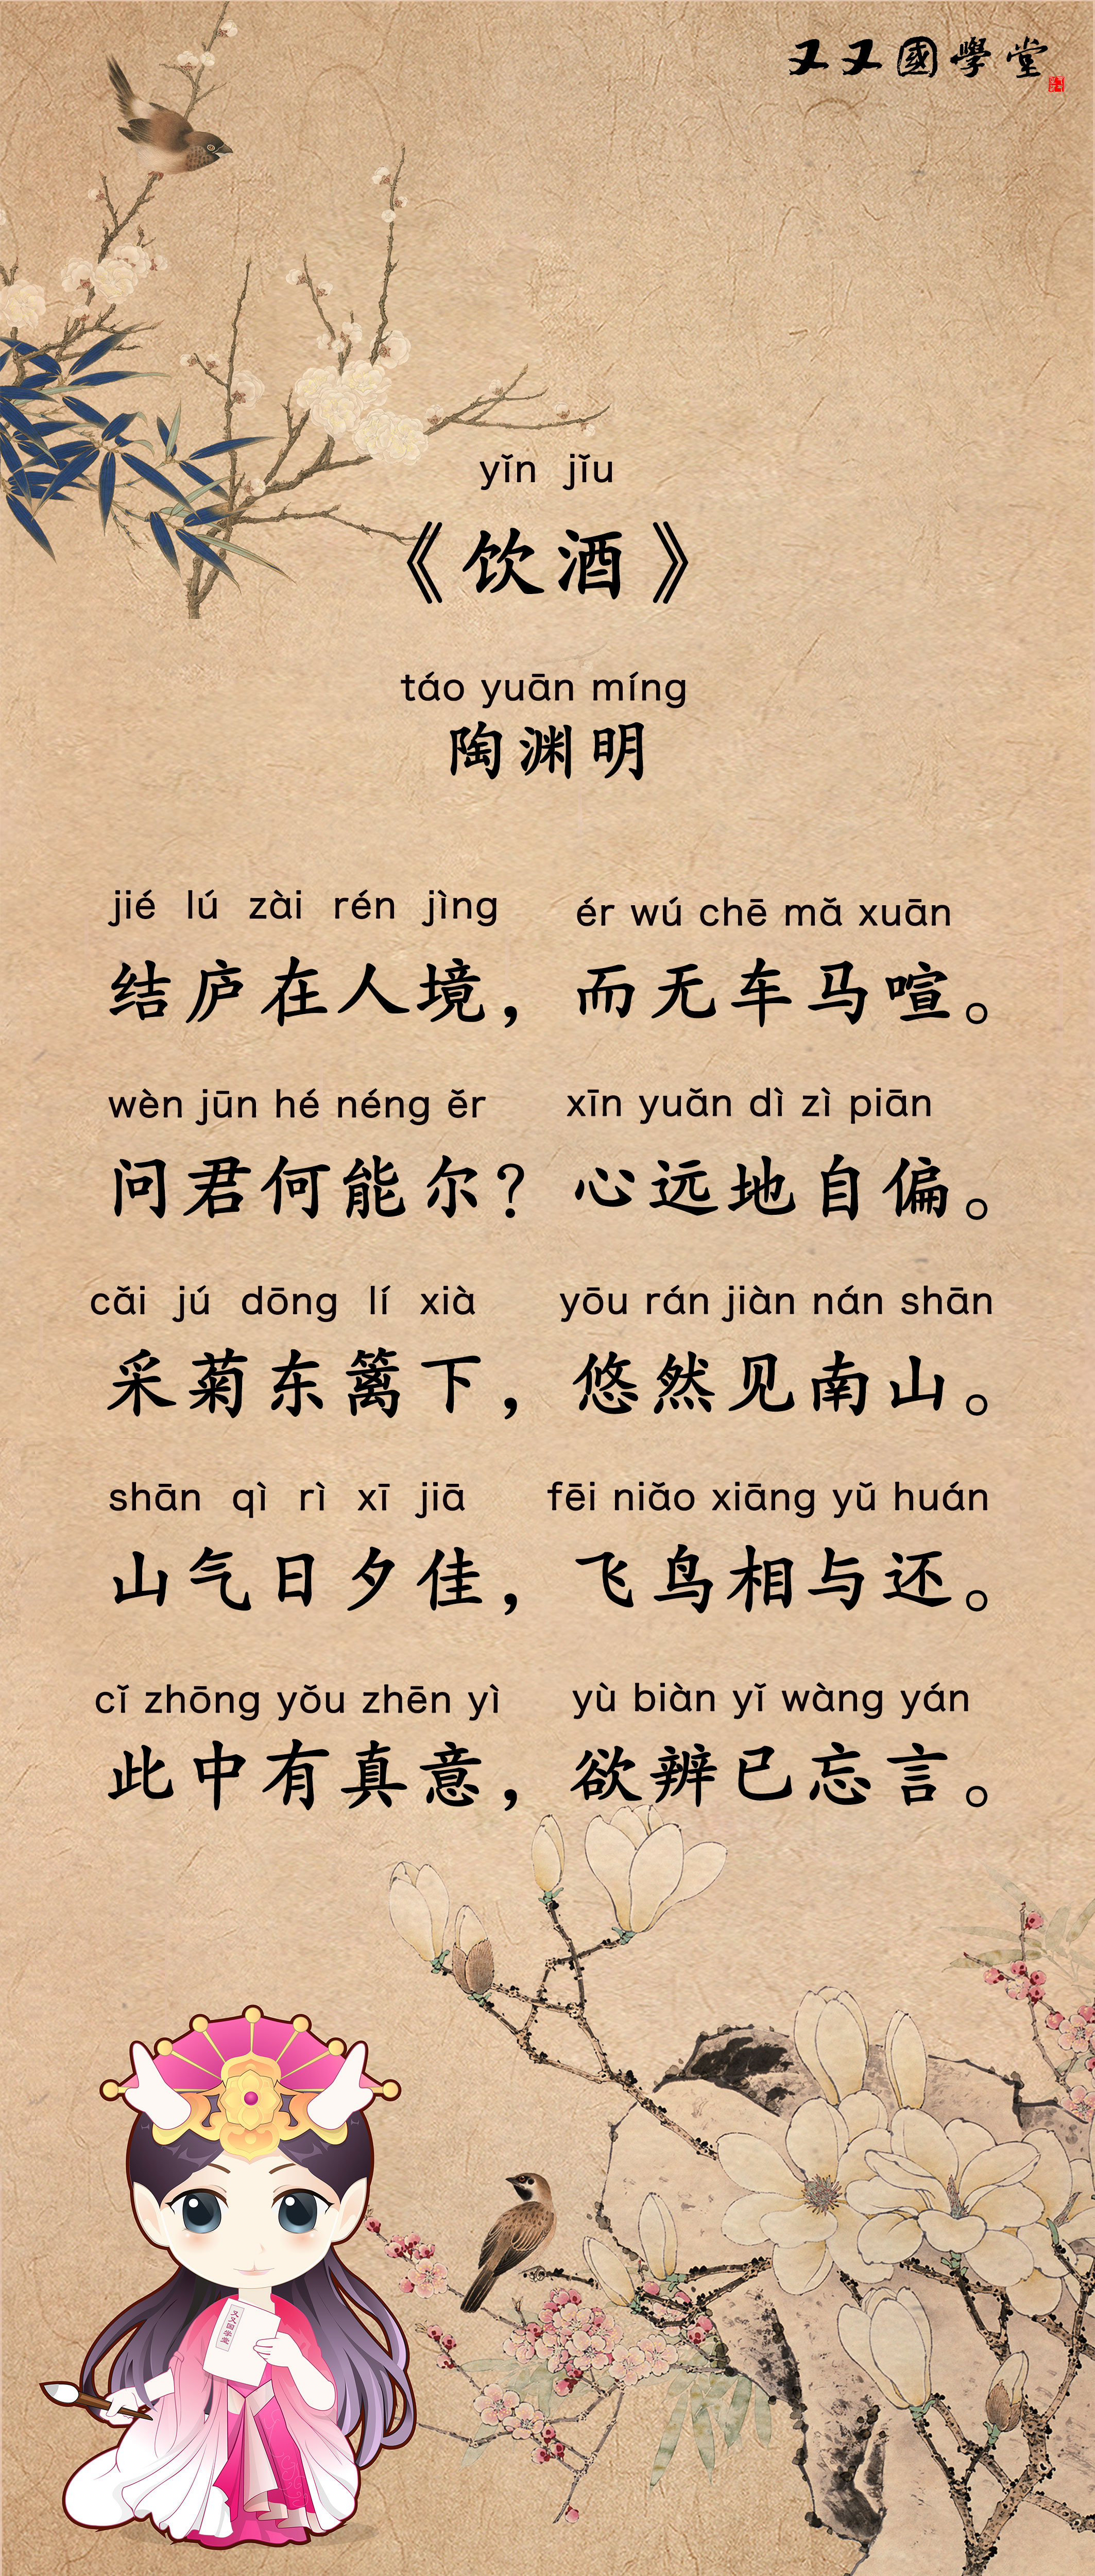 又又國學堂
yǐn jǐu
《饮酒》
táo yuān míng
陶渊明
jié lú zài rén jìng ér wú chē mǎ xuān
结庐在人境，而无车马喧。
wèn jūn hé néng ěr xīn yuǎn dì zì piān
问君何能尔？心远地自偏。
cǎi jú dōng lí xià yōu rán jiàn nán shān
采菊东篱下，悠然见南山。
shān qì rì xī jiā fēi niǎo xiāng yǔ huán
山气日夕佳，飞鸟相与还。
cǐ zhōng yǒu zhēn yì yù biàn yǐ wàng yán
此中有真意，欲辨已忘言。
又又國學堂